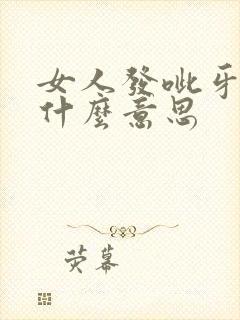 女人發呲牙
什麼意思
荧幕